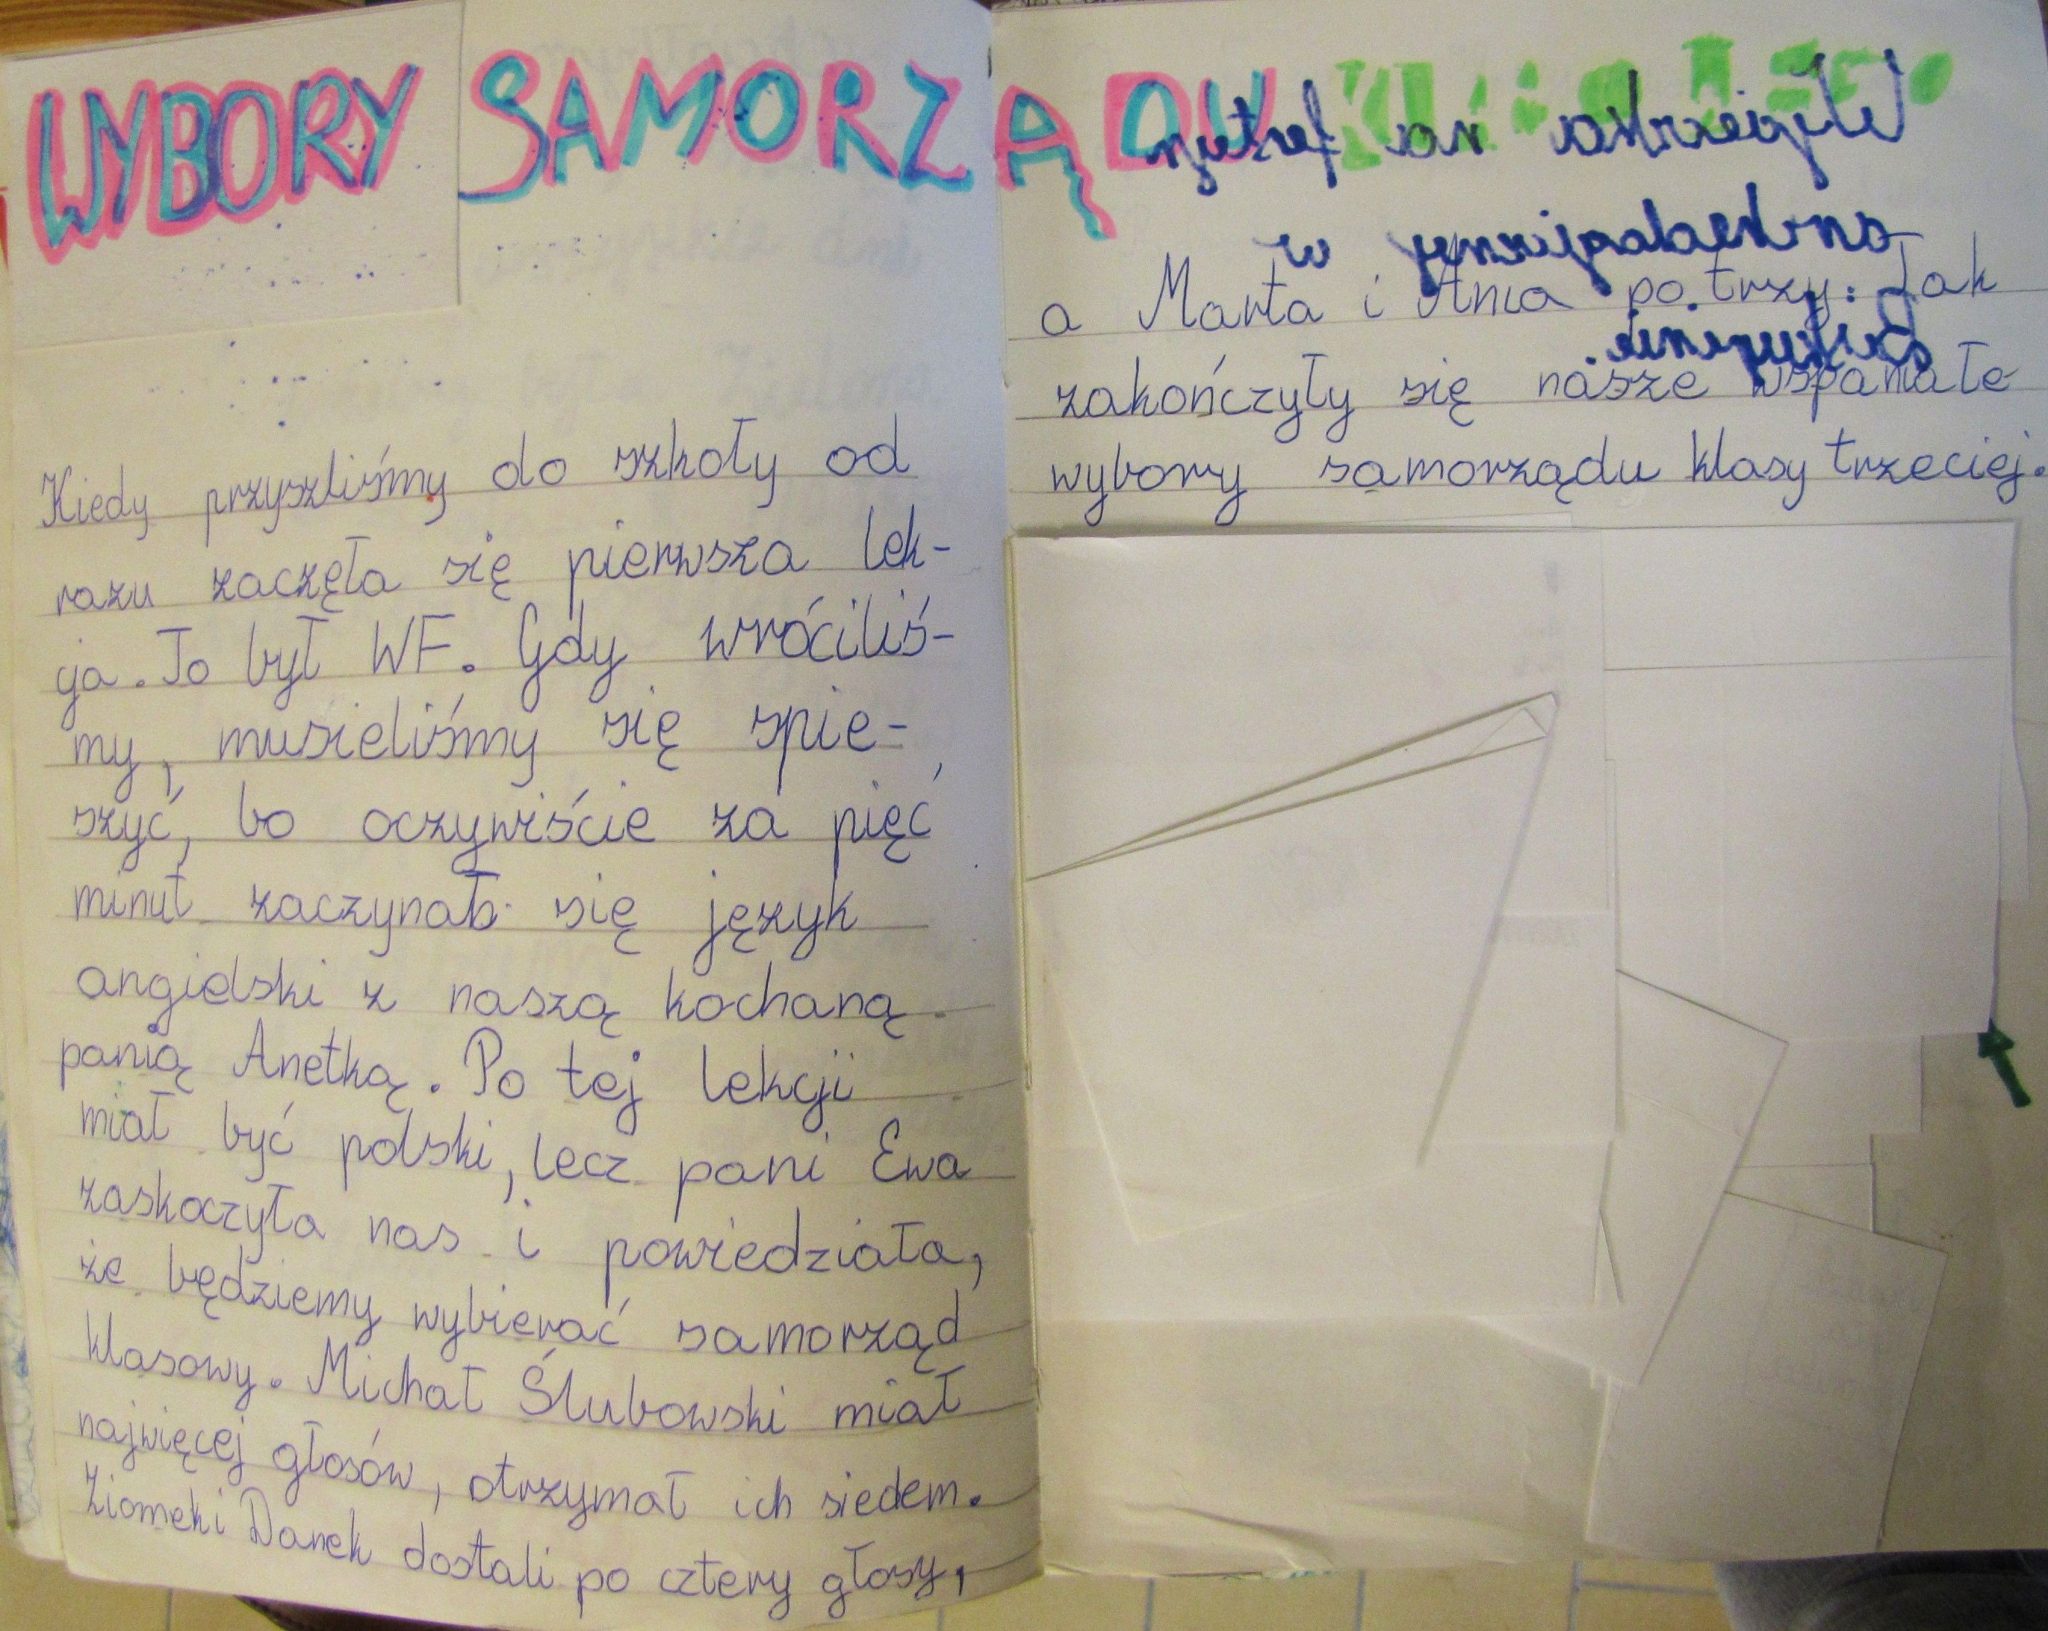 WYBORY SAMORZĄDU
Kiedy przyszliśmy do szkoły od
razu zaczęła się pierwsza lek-
cja. To był WF. Gdy wróciliś-
my, musieliśmy się spie-
szyć, bo oczywiście za pięć
minut zaczynał się język
angielski z naszą kochaną
panią Anetką. Po tej lekcji
miał być polski, lecz pani Ewa
zaskoczyła nas i powiedziała,
że będziemy wybierać samorząd
klasowy. Michał Ślubowski miał
najwięcej głosów, otrzymał ich siedem.
Ziomek i Darek dostali po cztery głosy,
a Marta i Ania po trzy. Tak
zakończyły się nasze wspaniałe
wybory samorządu klasy trzeciej.
Wycieczka na
w